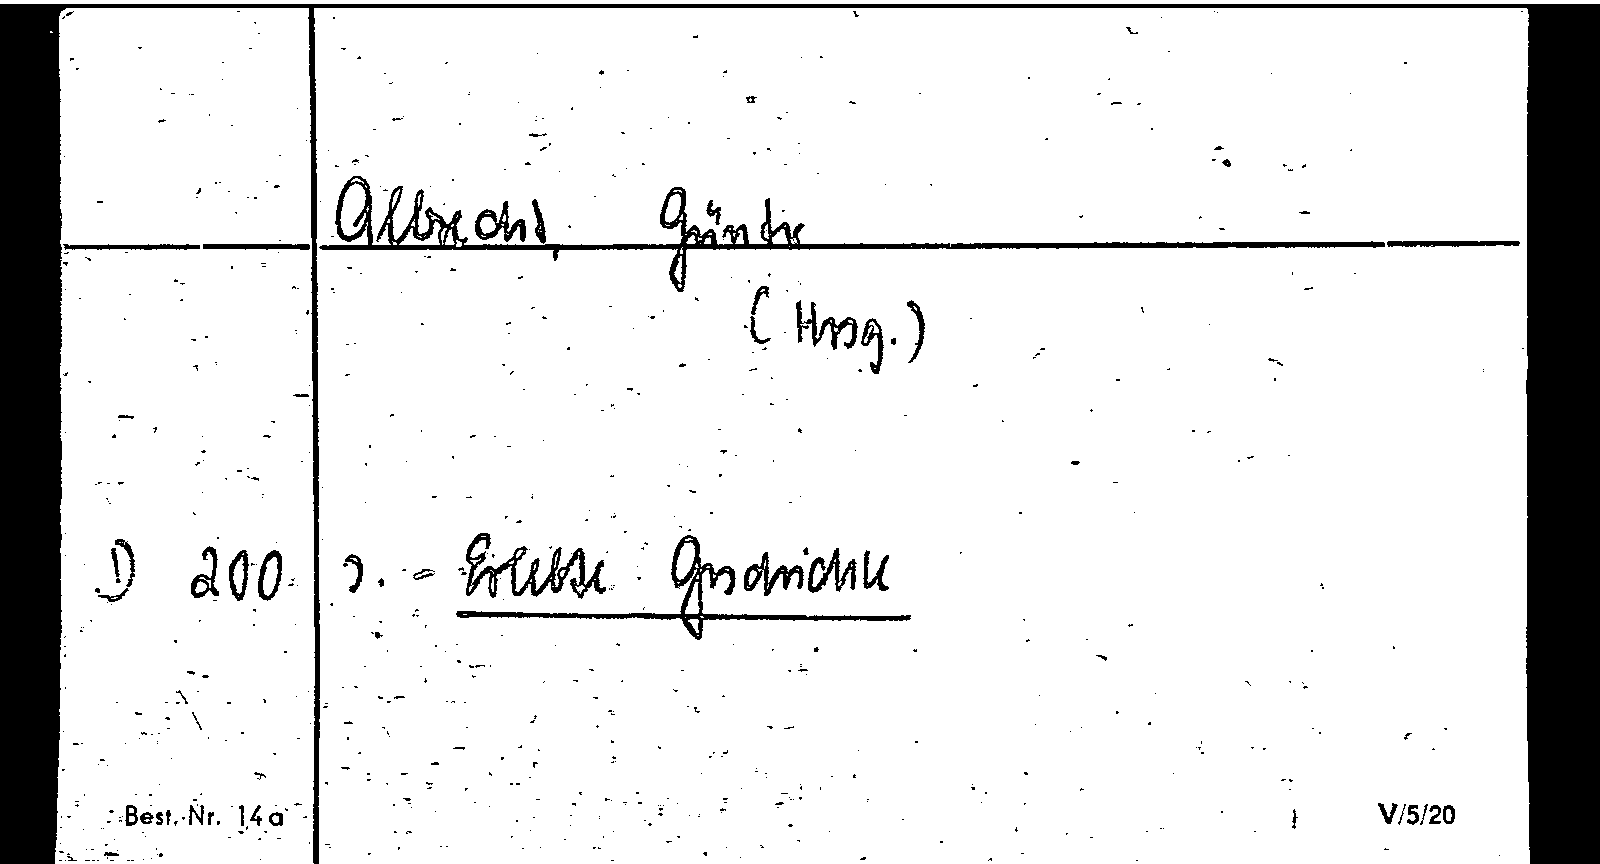 Albrecht, Günter
(Hrsg.)
D 200 s. - Erlebte Geschichte
Best.-Nr. 14a V/5/20